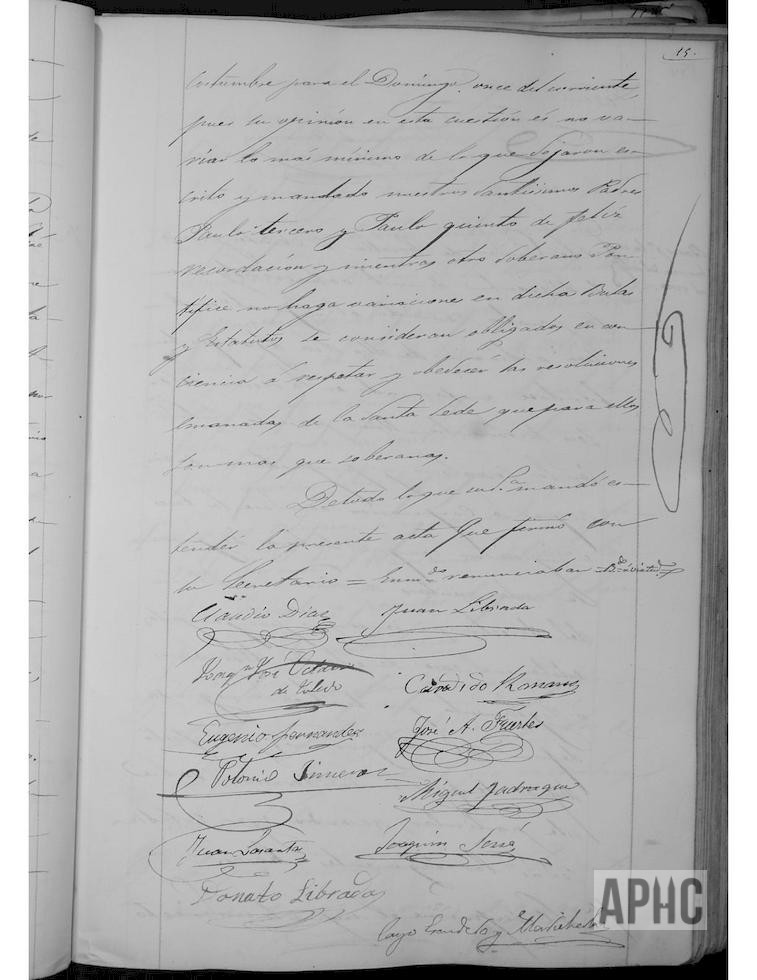 15.
costumbre para el Domingo once del corriente,
pues su opinión en esta cuestión és no va-
riar lo más mínimo de lo que dejáron es-
crito y mandado nuestros Santísimos Padres
Paulo tercero y Paulo quinto de feliz
recordación y mientras otro Soberano Pon-
tífice no haga variaciones en dicha Bulas
y Estatutos se consideran obligados en con-
ciencia á respetar y obedecér las resoluciones
emanadas de la Santa Sede que para ellos
son mas que soberanas.
De todo lo que su S.ª mandó es-
tendér la presente acta que firmó con
su Secretario = Enm.do renunciaban =
Claudio Diaz Juan Librado
José
de Toledo Candido Romano
Eugenio fernandez José A. Fuertes
Polonio Jimeno
Miguel Jadraque
Juan Joaquin Serrá
Donato Librado
Cayo
APHC